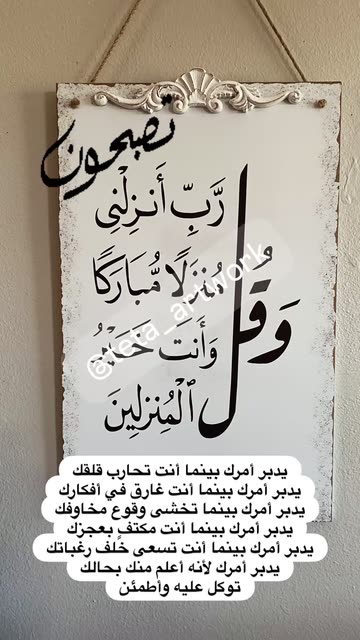 تصبحون
وَقُل
رَّبِّ أَنزِلْنِي
مُنزَلًا مُّبَارَكًا
وَأَنتَ خَيْرُ
الْمُنزِلِينَ
@teta_artwork
يدبر أمرك بينما أنت تحارب قلقك
يدبر أمرك بينما أنت غارق في أفكارك
يدبر أمرك بينما تخشى وقوع مخاوفك
يدبر أمرك بينما أنت مكتفٍ بعجزك
يدبر أمرك بينما أنت تسعى خلف رغباتك
يدبر أمرك لأنه أعلم منك بحالك
توكل عليه وأطمئن